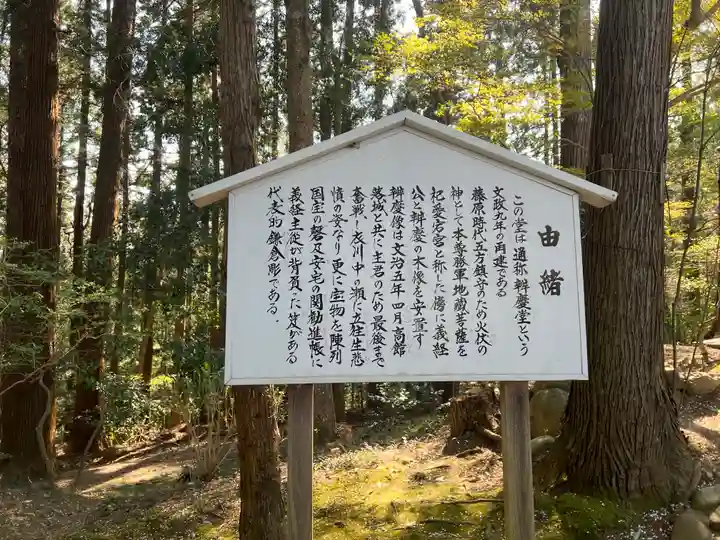 由緒
この堂は通称辨慶堂という
文政九年の再建である
藤原時代五方鎮守のため火伏の
神として本尊勝軍地蔵菩薩を
祀愛宕宮と称した傍に義経
公と辨慶の木像を安置す
辨慶像は文治五年四月高館
落城と共に主君のため最後まで
奮戦し衣川中の瀬に立往生悲
憤の姿なり更に宝物を陳列
国宝の磬及安宅の関勧進帳に
義経主従が背負った笈がある
代表的鎌倉彫である.